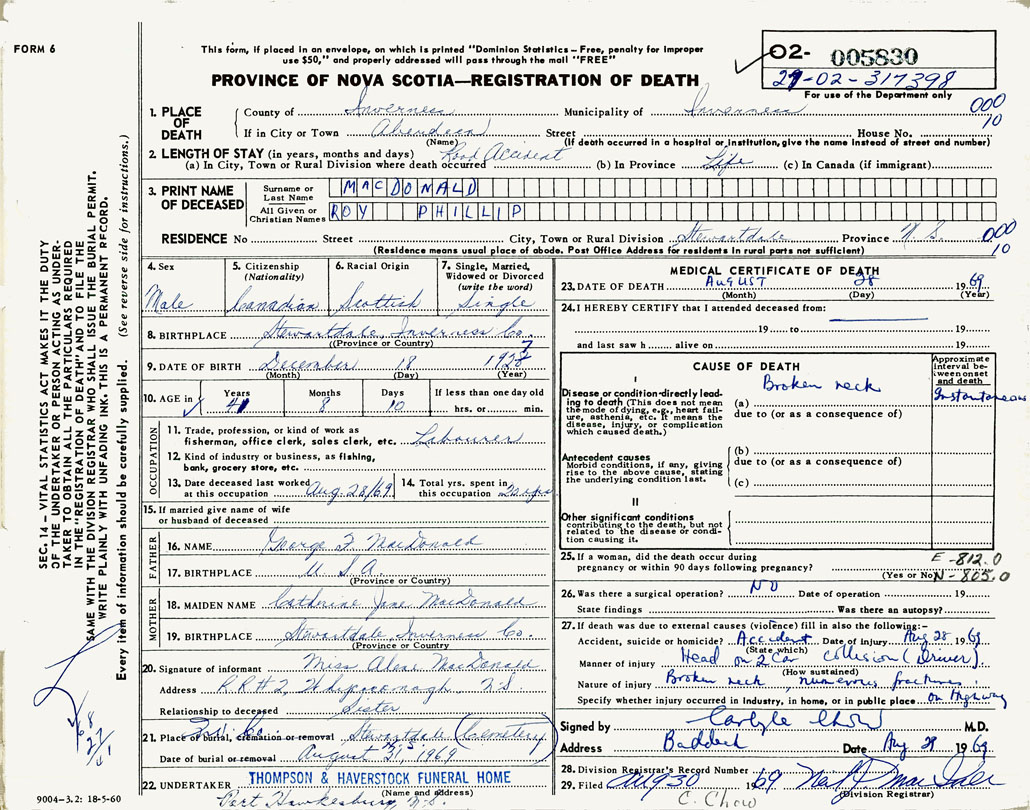 FORM 6
This form, if placed in an envelope, on which is printed "Dominion Statistics – Free, penalty for improper
use $50," and properly addressed will pass through the mail "FREE"
PROVINCE OF NOVA SCOTIA—REGISTRATION OF DEATH
02- 005830
29-02-317398
For use of the Department only
000
10
1. PLACE OF DEATH
County of Inverness Municipality of Inverness
If in City or Town Aberdeen Street House No.
(Name) (If death occurred in a hospital or institution, give the name instead of street and number)
2. LENGTH OF STAY (in years, months and days) Road Accident
(a) In City, Town or Rural Division where death occurred (b) In Province Life (c) In Canada (if immigrant)
3. PRINT NAME OF DECEASED
Surname or Last Name MACDONALD
All Given or Christian Names ROY PHILLIP
RESIDENCE No Street City, Town or Rural Division Stewartdale Province N.S.
000
10
(Residence means usual place of abode. Post Office Address for residents in rural parts not sufficient)
4. Sex
Male
5. Citizenship
(Nationality)
Canadian
6. Racial Origin
Scottish
7. Single, Married,
Widowed or Divorced
(write the word)
Single
8. BIRTHPLACE Stewartdale, Inverness Co.
(Province or Country)
9. DATE OF BIRTH December 18 1927
(Month) (Day) (Year)
10. AGE in Years 41 Months 8 Days 10 If less than one day old
hrs. or min.
OCCUPATION
11. Trade, profession, or kind of work as
fisherman, office clerk, sales clerk, etc. Labourer
12. Kind of industry or business, as fishing,
bank, grocery store, etc.
13. Date deceased last worked
at this occupation Aug. 28/69
14. Total yrs. spent in
this occupation 20 yrs
15. If married give name of wife
or husband of deceased
FATHER
16. NAME George F. MacDonald
17. BIRTHPLACE U.S.A.
(Province or Country)
MOTHER
18. MAIDEN NAME Catherine Jane MacDonald
19. BIRTHPLACE Stewartdale, Inverness Co.
(Province or Country)
20. Signature of informant Miss MacDonald
Address R R # 2, Whycocomagh N.S
Relationship to deceased Sister
21. Place of burial, cremation or removal Stewartdale (Cemetery)
Date of burial or removal August 31, 1969
22. UNDERTAKER THOMPSON & HAVERSTOCK FUNERAL HOME
(Name and address)
Port Hawkesbury, N.S.
MEDICAL CERTIFICATE OF DEATH
23. DATE OF DEATH AUGUST 28 1969
(Month) (Day) (Year)
24. I HEREBY CERTIFY that I attended deceased from:
19 to 19
and last saw h alive on 19
CAUSE OF DEATH
Approximate interval between onset and death
I
Disease or condition directly leading to death (This does not mean the mode of dying, e.g., heart failure, asthenia, etc. It means the disease, injury, or complication which caused death.)
(a) Broken neck
Instantaneous
due to (or as a consequence of)
Antecedent causes
Morbid conditions, if any, giving rise to the above cause, stating the underlying condition last.
(b)
due to (or as a consequence of)
(c)
II
Other significant conditions
contributing to the death, but not related to the disease or condition causing it.
25. If a woman, did the death occur during
pregnancy or within 90 days following pregnancy?
(Yes or No)
E-812.0
N-805.0
26. Was there a surgical operation? NO Date of operation 19
State findings Was there an autopsy?
27. If death was due to external causes (violence) fill in also the following:-
Accident, suicide or homicide? Accident Date of injury Aug 28 1969
(State which)
Manner of injury Head on 2 car collision (Driver).
(How sustained)
Nature of injury Broken neck, numerous fractures
Specify whether injury occurred in industry, in home, or in public place on Highway
Signed by Carlyle Chow M.D.
Address Baddeck Date Aug 29 1969
28. Division Registrar's Record Number
29. Filed Aug 30 1969
(Division Registrar)
C. Chow
SEC. 14 – VITAL STATISTICS ACT MAKES IT THE DUTY
OF THE UNDERTAKER OR PERSON ACTING AS UNDER-
TAKER TO OBTAIN ALL THE PARTICULARS REQUIRED
IN THE "REGISTRATION OF DEATH" AND TO FILE THE
SAME WITH THE DIVISION REGISTRAR WHO SHALL ISSUE THE BURIAL PERMIT.
WRITE PLAINLY WITH UNFADING INK. THIS IS A PERMANENT RECORD.
Every item of information should be carefully supplied. (See reverse side for instructions.)
9004-3.2: 18-5-60